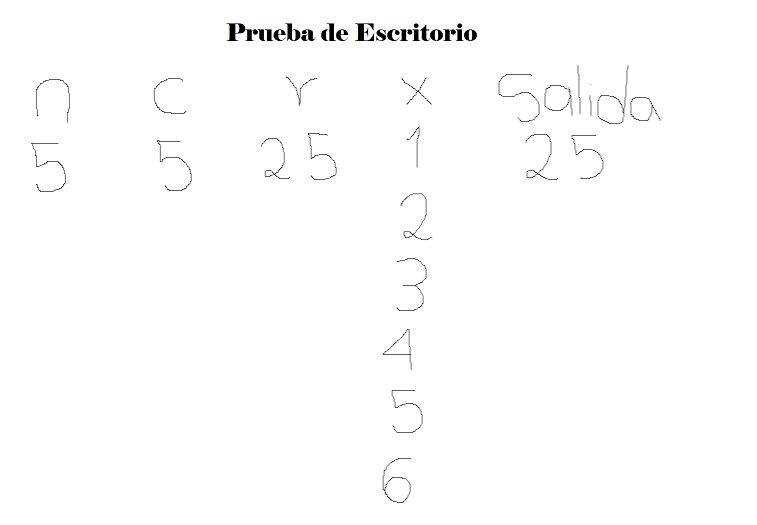 Prueba de Escritorio
n c r x Salida
5 5 25 1 25
2
3
4
5
6